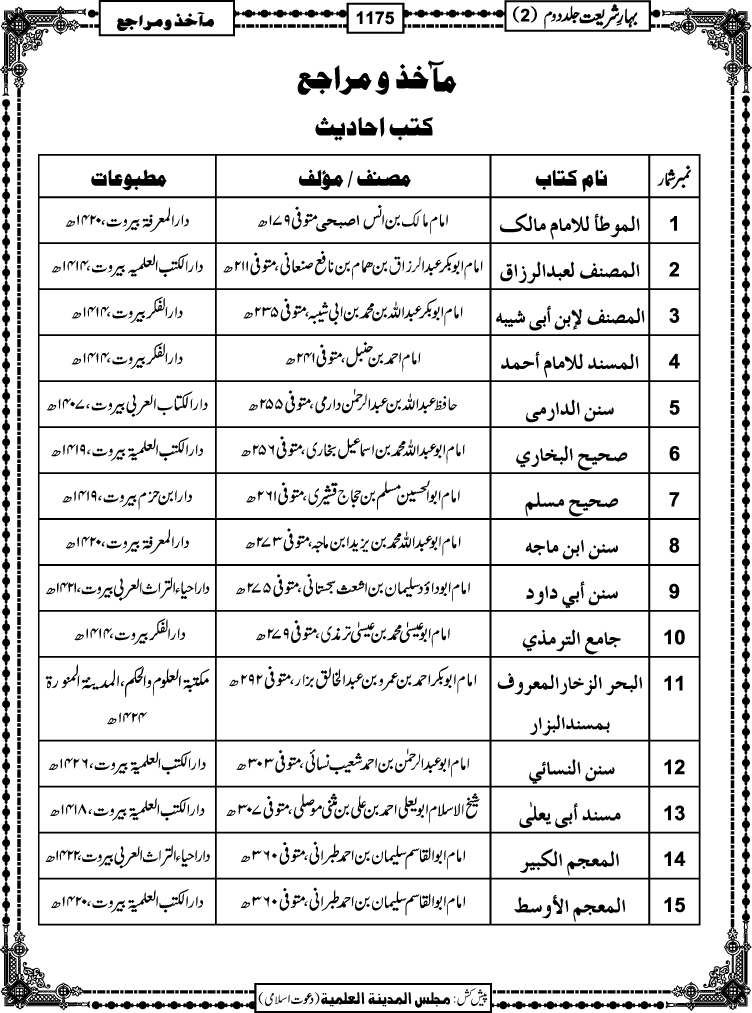 بہارِ شریعت جلد دوم (2)
1175
مآخذ و مراجع
مآخذ و مراجع
کتب احادیث
نمبر شمار نام کتاب مصنف / مؤلف مطبوعات
1 الموطأ للامام مالک امام مالک بن انس اصبحی متوفی ۱۷۹ھ دارالمعرفۃ بیروت، ۱۴۲۰ھ
2 المصنف لعبدالرزاق امام ابوبکر عبدالرزاق بن ھمام بن نافع صنعانی، متوفی ۲۱۱ھ دارالکتب العلمیہ بیروت، ۱۴۱۴ھ
3 المصنف لإبن أبی شیبه امام ابوبکر عبداللہ بن محمد بن ابی شیبہ، متوفی ۲۳۵ھ دارالفکر بیروت، ۱۴۱۴ھ
4 المسند للامام أحمد امام احمد بن حنبل، متوفی ۲۴۱ھ دارالفکر بیروت، ۱۴۱۴ھ
5 سنن الدارمی حافظ عبداللہ بن عبدالرحمٰن دارمی، متوفی ۲۵۵ھ دارالکتاب العربی بیروت، ۱۴۰۷ھ
6 صحیح البخاري امام ابوعبداللہ محمد بن اسماعیل بخاری، متوفی ۲۵۶ھ دارالکتب العلمیۃ بیروت، ۱۴۱۹ھ
7 صحیح مسلم امام ابوالحسین مسلم بن حجاج قشیری، متوفی ۲۶۱ھ دارابن حزم بیروت، ۱۴۱۹ھ
8 سنن ابن ماجه امام ابوعبداللہ محمد بن یزید ابن ماجہ، متوفی ۲۷۳ھ دارالمعرفۃ بیروت، ۱۴۲۰ھ
9 سنن أبي داود امام ابوداؤد سلیمان بن اشعث سجستانی، متوفی ۲۷۵ھ داراحیاء التراث العربی بیروت، ۱۴۲۱ھ
10 جامع الترمذي امام ابوعیسیٰ محمد بن عیسیٰ ترمذی، متوفی ۲۷۹ھ دارالفکر بیروت، ۱۴۱۴ھ
11 البحر الزخار المعروف امام ابوبکر احمد بن عمرو بن عبدالخالق بزار، متوفی ۲۹۲ھ مکتبۃ العلوم والحکم، المدینۃ المنورۃ
بمسند البزار ۱۴۲۴ھ
12 سنن النسائي امام ابوعبدالرحمٰن بن احمد شعیب نسائی، متوفی ۳۰۳ھ دارالکتب العلمیۃ بیروت، ۱۴۲۶ھ
13 مسند أبی یعلٰی شیخ الاسلام ابویعلی احمد بن علی بن مثنی موصلی، متوفی ۳۰۷ھ دارالکتب العلمیۃ بیروت، ۱۴۱۸ھ
14 المعجم الکبیر امام ابوالقاسم سلیمان بن احمد طبرانی، متوفی ۳۶۰ھ داراحیاء التراث العربی بیروت، ۱۴۲۲ھ
15 المعجم الأوسط امام ابوالقاسم سلیمان بن احمد طبرانی، متوفی ۳۶۰ھ دارالکتب العلمیۃ بیروت، ۱۴۲۰ھ
پیش کش: مجلس المدینة العلمیة (دعوت اسلامی)